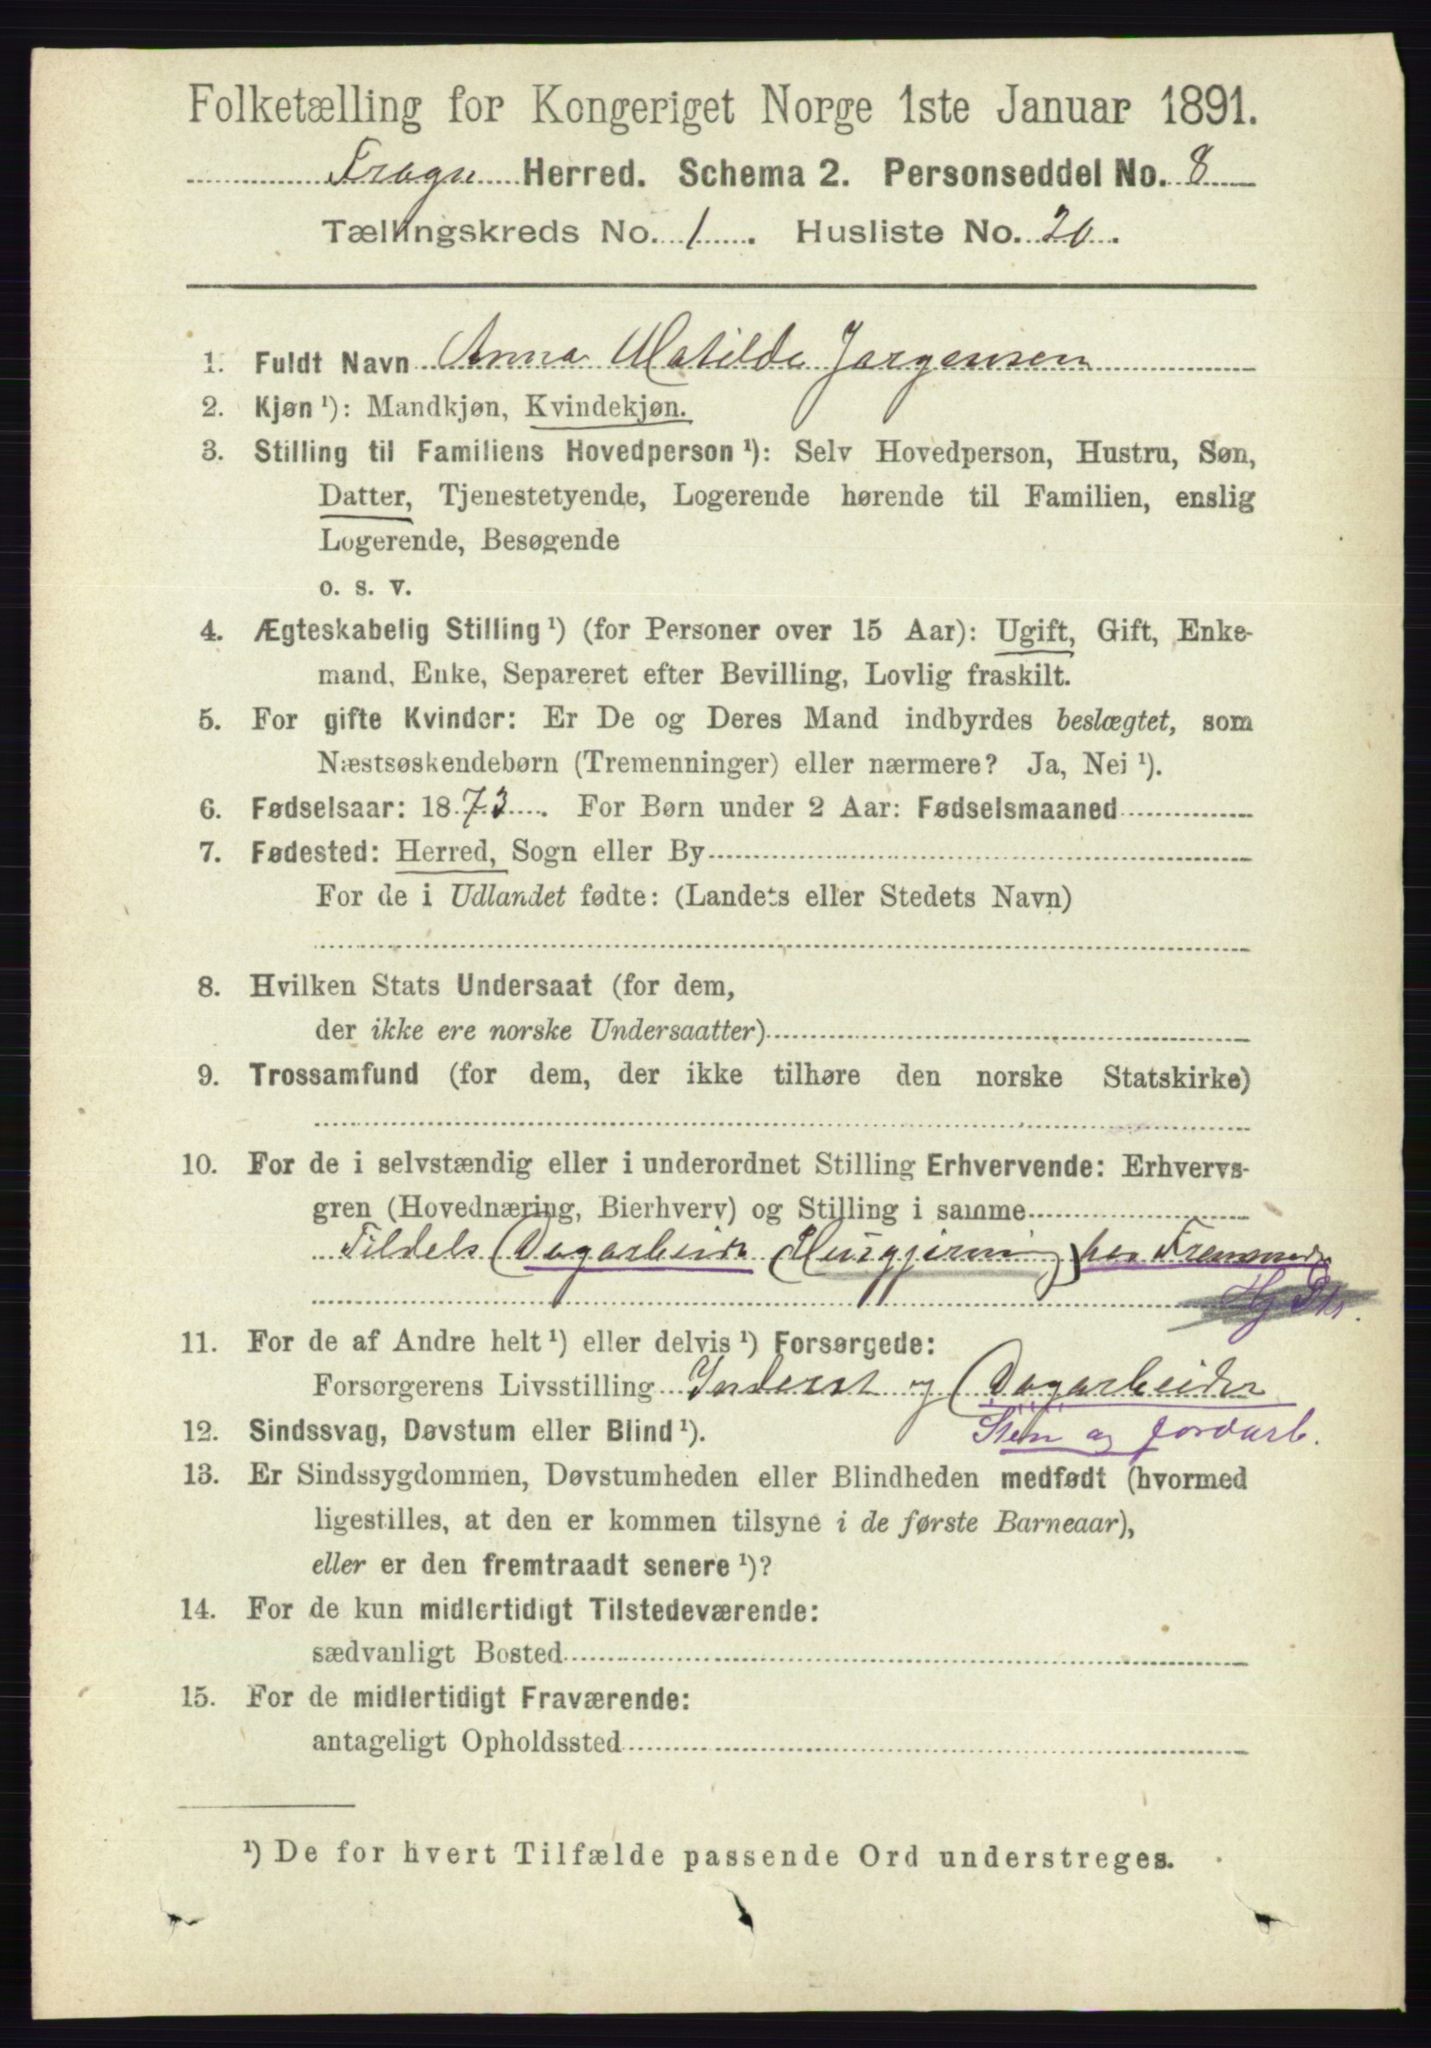 Folketælling for Kongeriget Norge 1ste Januar 1891.
Frogn Herred. Schema 2. Personseddel No. 8
Tællingskreds No. 1. Husliste No. 20.
1. Fuldt Navn Anna Matilde Jørgensen
2. Kjøn ¹): Mandkjøn, Kvindekjøn.
3. Stilling til Familiens Hovedperson ¹): Selv Hovedperson, Hustru, Søn,
Datter, Tjenestetyende, Logerende hørende til Familien, enslig
Logerende, Besøgende
o. s. v.
4. Ægteskabelig Stilling ¹) (for Personer over 15 Aar): Ugift, Gift, Enke-
mand, Enke, Separeret efter Bevilling, Lovlig fraskilt.
5. For gifte Kvinder: Er De og Deres Mand indbyrdes beslægtet, som
Næstsøskendebørn (Tremenninger) eller nærmere? Ja, Nei ¹).
6. Fødselsaar: 1873. For Børn under 2 Aar: Fødselsmaaned
7. Fødested: Herred, Sogn eller By
For de i Udlandet fødte: (Landets eller Stedets Navn)
8. Hvilken Stats Undersaat (for dem,
der ikke ere norske Undersaatter)
9. Trossamfund (for dem, der ikke tilhøre den norske Statskirke)
10. For de i selvstændig eller i underordnet Stilling Erhvervende: Erhvervs-
gren (Hovednæring, Bierhverv) og Stilling i samme
Tildels Dagarbeide (Husgjerning) hos Fremmede
11. For de af Andre helt ¹) eller delvis ¹) Forsørgede:
Forsørgerens Livsstilling Inderst og Dagarbeider
Sten og jordarb.
12. Sindssvag, Døvstum eller Blind ¹).
13. Er Sindssygdommen, Døvstumheden eller Blindheden medfødt (hvormed
ligestilles, at den er kommen tilsyne i de første Barneaar),
eller er den fremtraadt senere ¹)?
14. For de kun midlertidigt Tilstedeværende:
sædvanligt Bosted
15. For de midlertidigt Fraværende:
antageligt Opholdssted
¹) De for hvert Tilfælde passende Ord understreges.